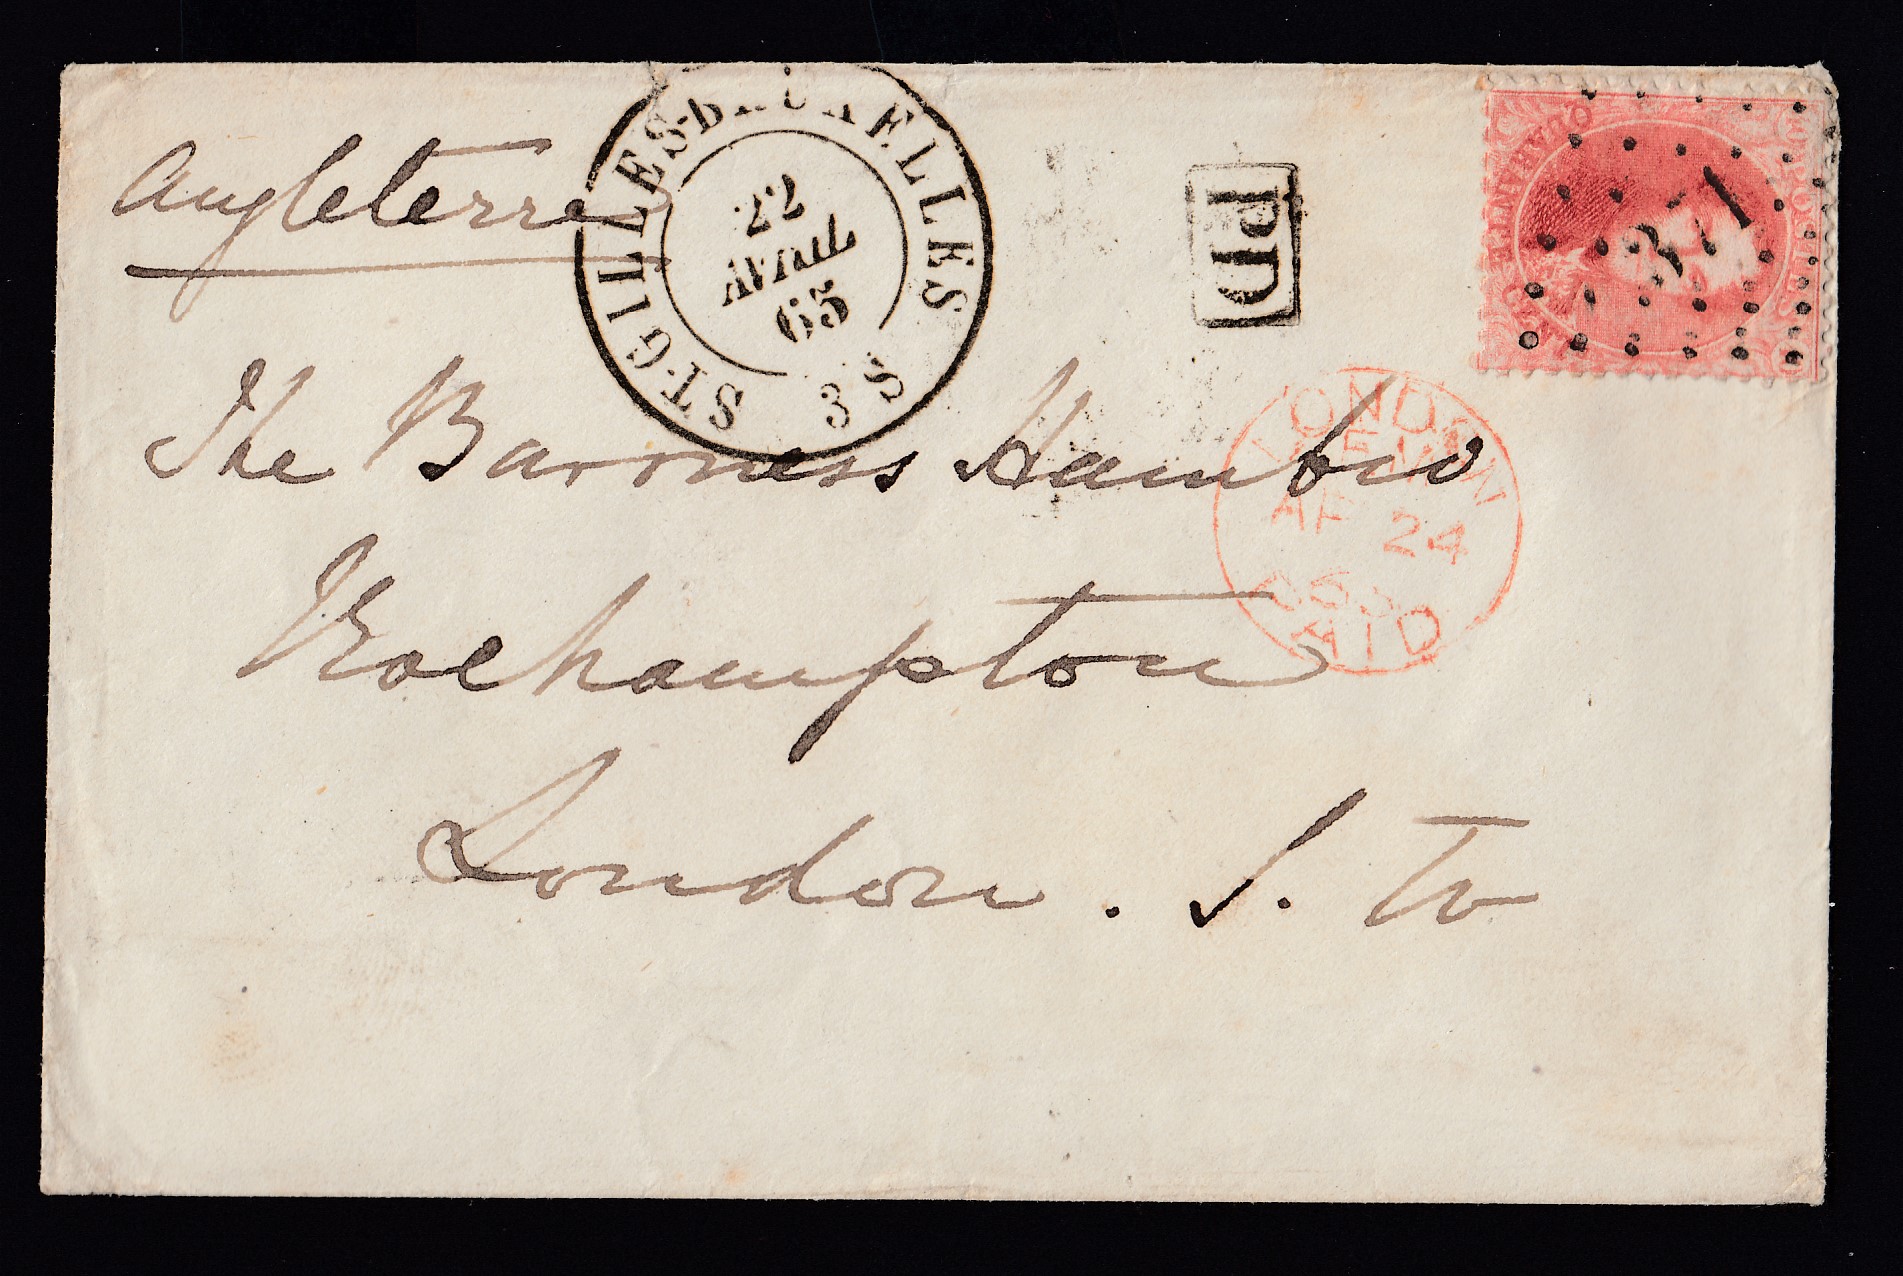 Angleterre
ST-GILLES-BRUXELLES
22
AVRIL
65
3 S
PD
QUARANTE
371
LONDON
AP 24
65
PAID
The Baroness Hambro
Roehampton
London. S. W